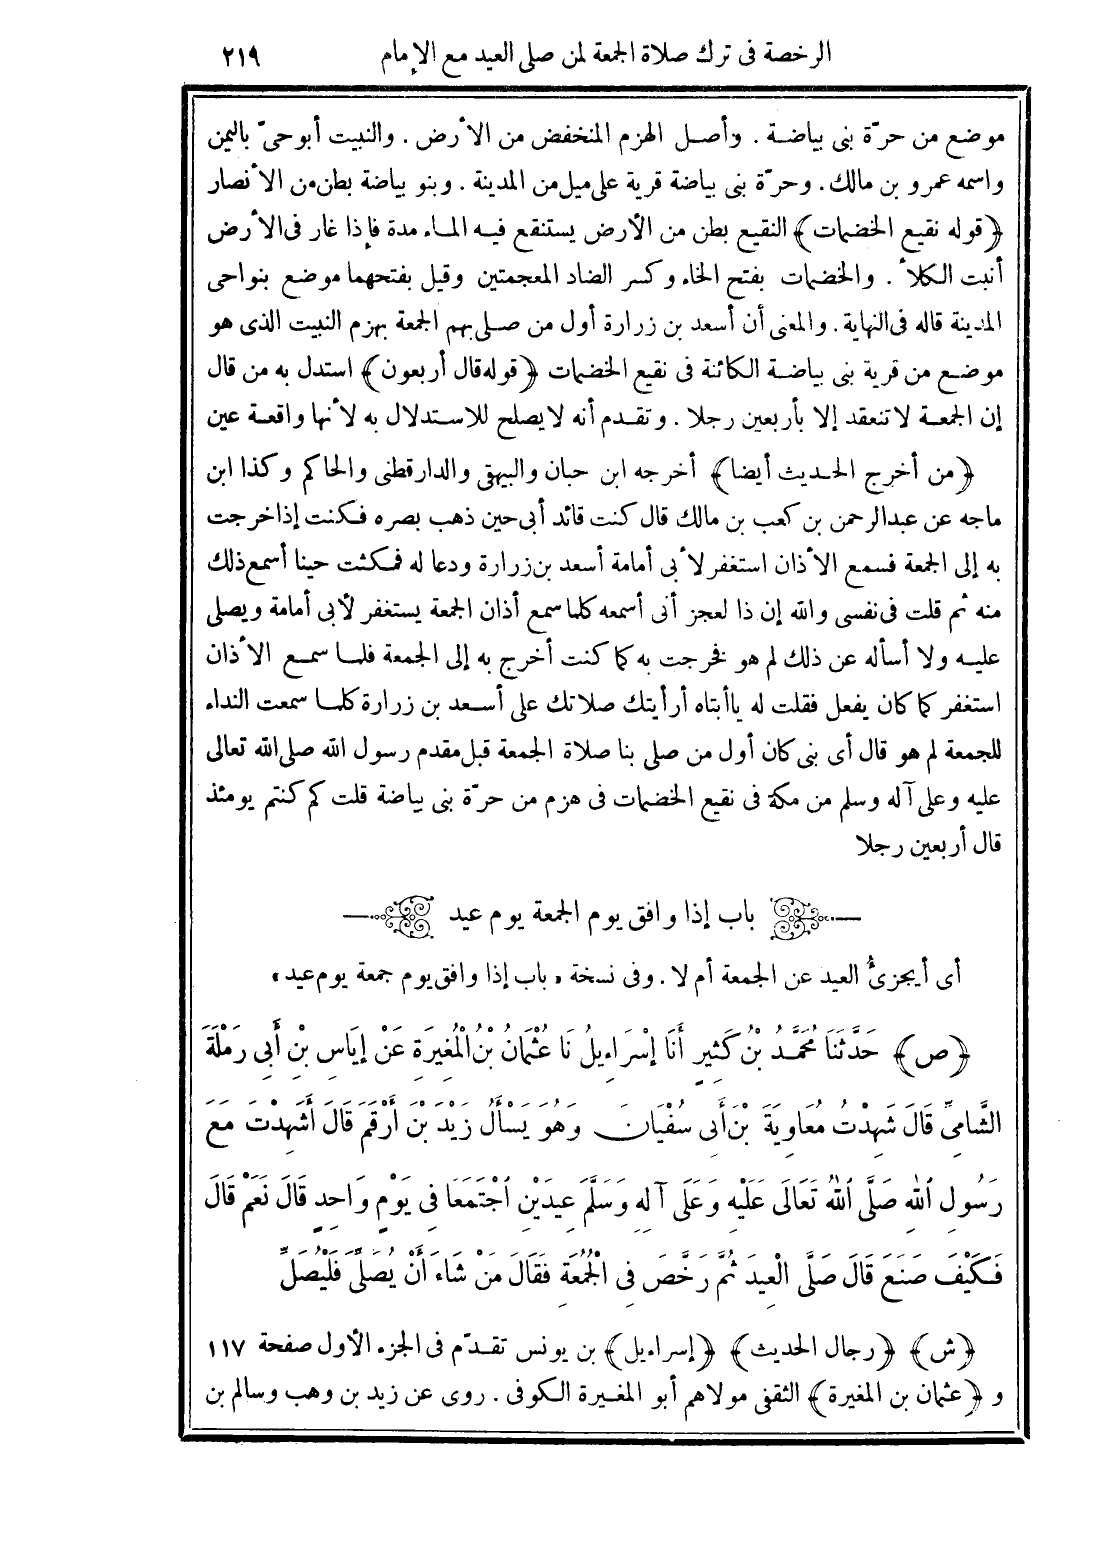 الرخصة فى ترك صلاة الجمعة لمن صلى العيد مع الإمام ٢١٩
موضع من حرّة بنى بياضة . وأصل الهزم المنخفض من الأرض . والنبيت أبوحىّ باليمن
واسمه عمرو بن مالك . وحرّة بنى بياضة قرية على ميل من المدينة . وبنو بياضة بطن من الأنصار
﴿قوله نقيع الخضمات﴾ النقيع بطن من الأرض يستنقع فيه الماء مدة فإذا غار فى الأرض
أنبت الكلأ . والخضمات بفتح الخاء وكسر الضاد المعجمتين وقيل بفتحهما موضع بنواحى
المدينة قاله فى النهاية . والمعنى أن أسعد بن زرارة أول من صلى بهم الجمعة بهزم النبيت الذى هو
موضع من قرية بنى بياضة الكائنة فى نقيع الخضمات ﴿قوله قال أربعون﴾ استدل به من قال
إن الجمعة لا تنعقد إلا بأربعين رجلا . وتقدم أنه لايصلح للاستدلال به لأنها واقعة عين
﴿من أخرج الحديث أيضا﴾ أخرجه ابن حبان والبيهقى والدارقطنى والحاكم وكذا ابن
ماجه عن عبدالرحمن بن كعب بن مالك قال كنت قائد أبى حين ذهب بصره فكنت إذا خرجت
به إلى الجمعة فسمع الأذان استغفر لأبى أمامة أسعد بن زرارة ودعا له فمكثت حينا أسمع ذلك
منه ثم قلت فى نفسى والله إن ذا لعجز أنى أسمعه كلما سمع أذان الجمعة يستغفر لأبى أمامة ويصلى
عليه ولا أسأله عن ذلك لم هو فخرجت به كما كنت أخرج به إلى الجمعة فلما سمع الأذان
استغفر كما كان يفعل فقلت له ياأبتاه أرأيتك صلاتك على أسعد بن زرارة كلما سمعت النداء
للجمعة لم هو قال أى بنى كان أول من صلى بنا صلاة الجمعة قبل مقدم رسول الله صلى الله تعالى
عليه وعلى آله وسلم من مكة فى نقيع الخضمات فى هزم من حرّة بنى بياضة قلت كم كنتم يومئذ
قال أربعين رجلا
باب إذا وافق يوم الجمعة يوم عيد
أى أيجزئُ العيد عن الجمعة أم لا . وفى نسخة « باب إذا وافق يوم جمعة يوم عيد »
﴿ص﴾ حَدَّثَنَا مُحَمَّدُ بْنُ كَثِيرٍ أَنَا إِسْرَاءِيلُ نَا عُثْمَانُ بْنُ الْمُغِيرَةِ عَنْ إِيَاسِ بْنِ أَبِى رَمْلَةَ
الشَّامِىِّ قَالَ شَهِدْتُ مُعَاوِيَةَ بْنَ أَبِى سُفْيَانَ وَهُوَ يَسْأَلُ زَيْدَ بْنَ أَرْقَمَ قَالَ أَشَهِدْتَ مَعَ
رَسُولِ اللهِ صَلَّى اللهُ تَعَالَى عَلَيْهِ وَعَلَى آلِهِ وَسَلَّمَ عِيدَيْنِ اجْتَمَعَا فِى يَوْمٍ وَاحِدٍ قَالَ نَعَمْ قَالَ
فَكَيْفَ صَنَعَ قَالَ صَلَّى الْعِيدَ ثُمَّ رَخَّصَ فِى الْجُمُعَةِ فَقَالَ مَنْ شَاءَ أَنْ يُصَلِّىَ فَلْيُصَلِّ
﴿ش﴾ ﴿رجال الحديث﴾ ﴿إسراءيل﴾ بن يونس تقدّم فى الجزء الأول صفحة ١١٧
و ﴿عثمان بن المغيرة﴾ الثقفى مولاهم أبو المغيرة الكوفى . روى عن زيد بن وهب وسالم بن